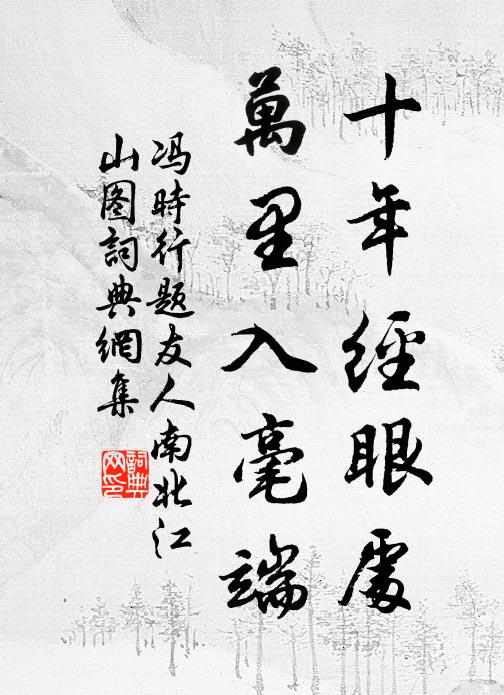 十年經眼處
萬里入毫端
冯時行题友人南北江
山图詞典網集
詞典
网印